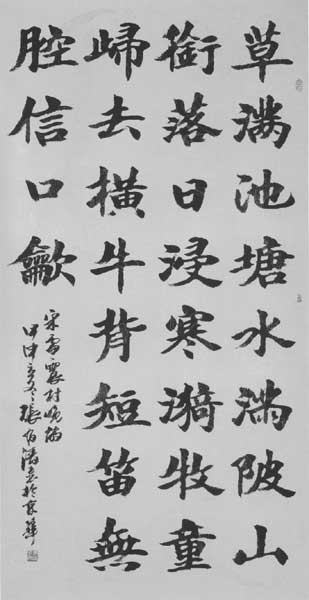 草滿池塘水滿陂山
銜落日浸寒漪牧童
歸去橫牛背短笛無
腔信口龡
宋雷震村晚詩
甲申冬張於京華